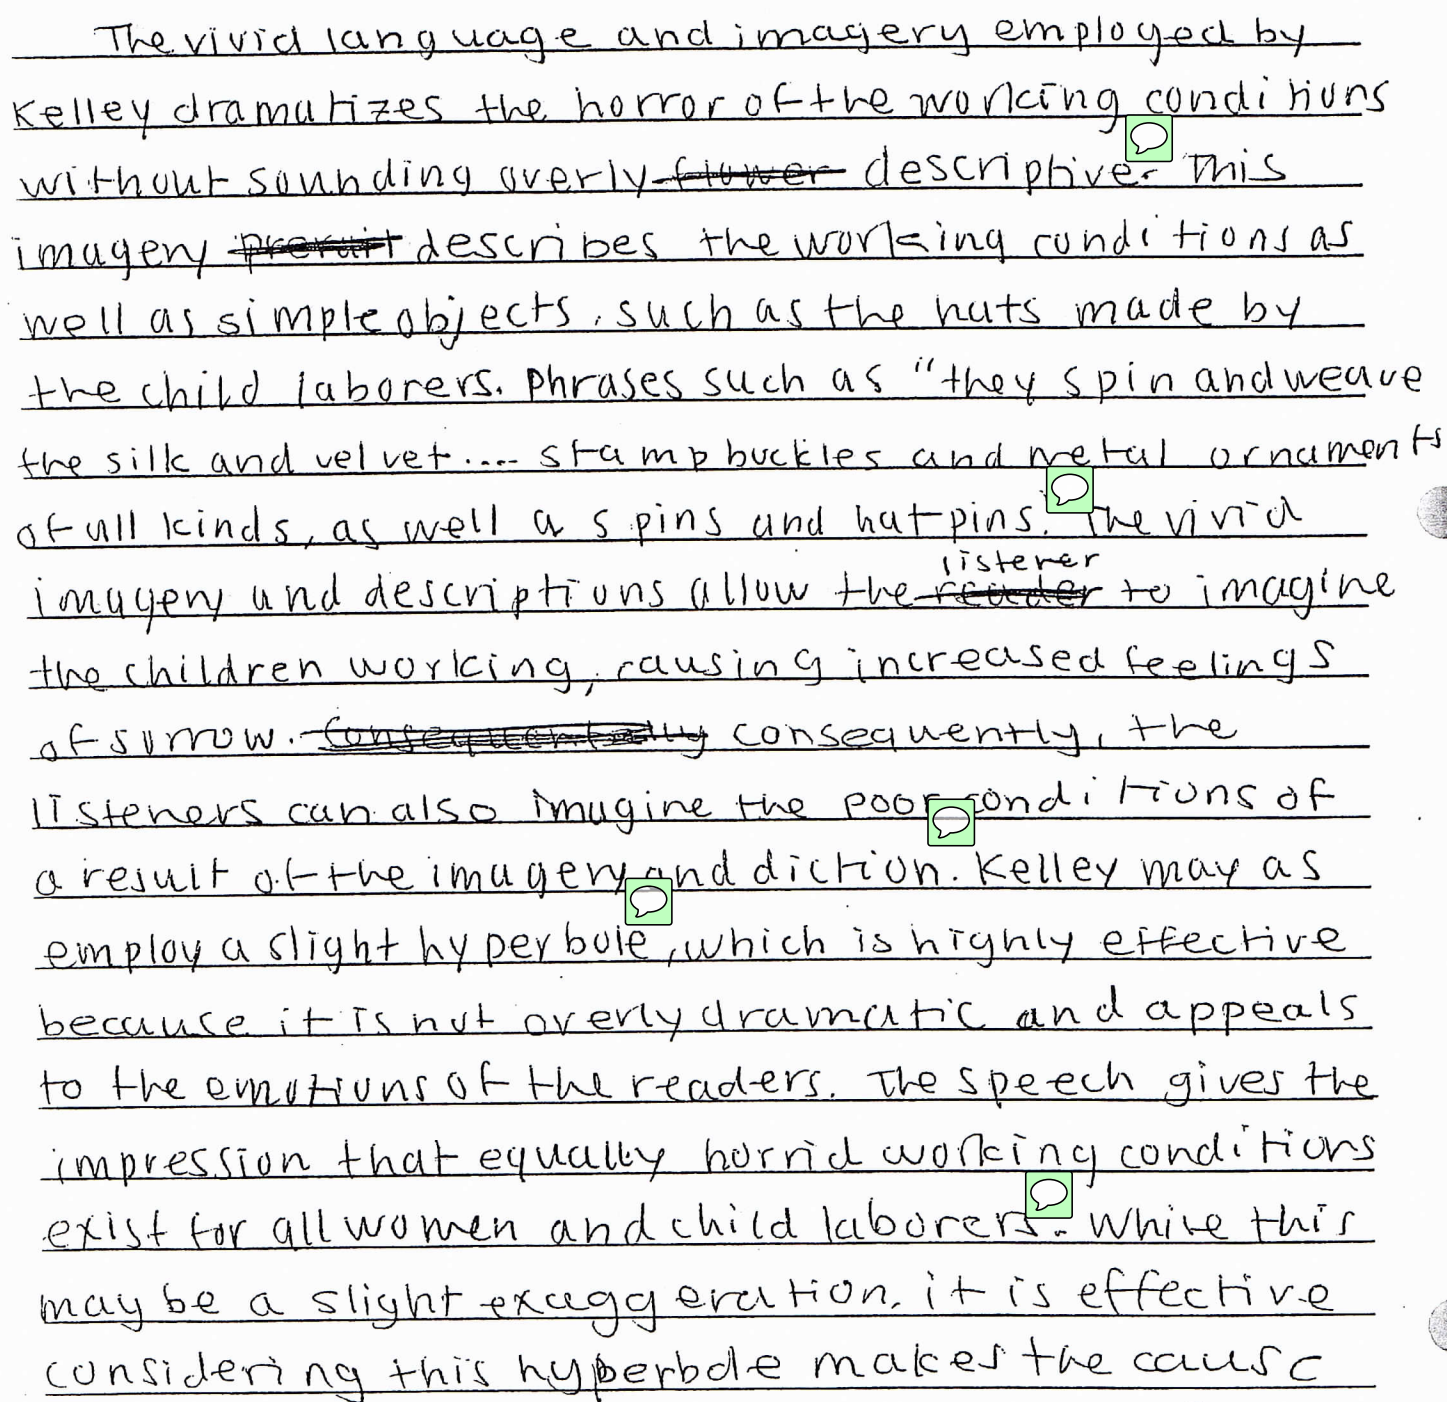 The vivid language and imagery employed by
Kelley dramatizes the horror of the working conditions
without sounding overly flower descriptive. This
imagery describes the working conditions as
well as simple objects, such as the hats made by
the child laborers. Phrases such as "they spin and weave
the silk and velvet.... stamp buckles and metal ornaments
of all kinds, as well as pins and hat pins." The vivid
listener
imagery and descriptions allow the reader to imagine
the children working, causing increased feelings
of sorrow. consequently, the
listeners can also imagine the poor conditions of
a result of the imagery and diction. Kelley may as
employ a slight hyperbole, which is highly effective
because it is not overly dramatic and appeals
to the emotions of the readers. The speech gives the
impression that equally horrid working conditions
exist for all women and child laborers. While this
may be a slight exaggeration, it is effective
considering this hyperbole makes the cause